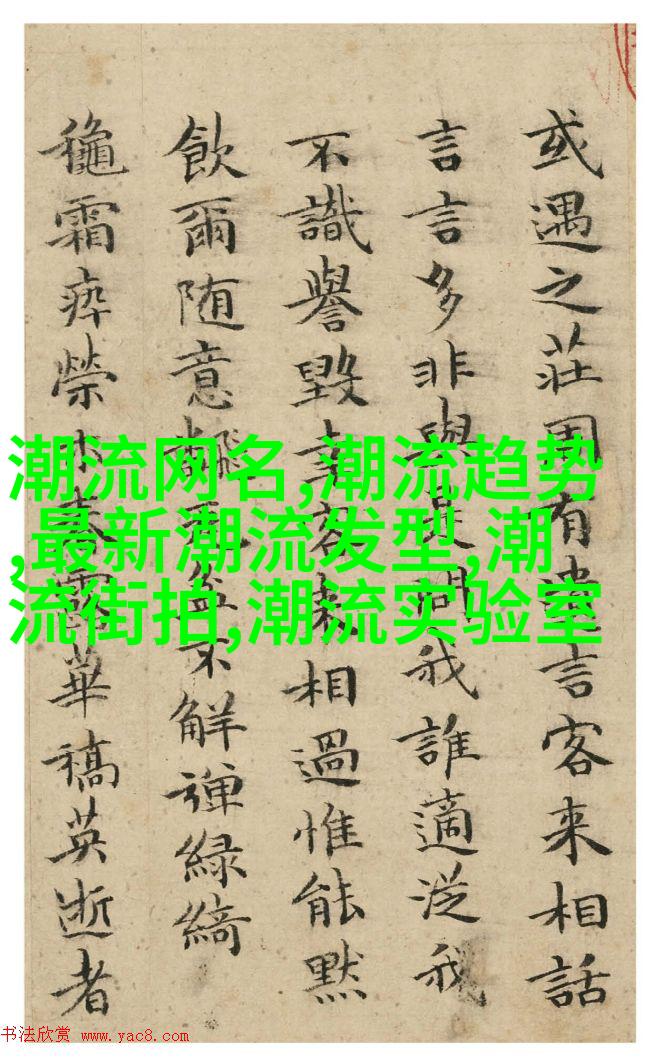 或遇之莊周有遺言客来相話
言言多非與是問我誰適従我
不識譽毀相過惟能默
飲爾随意盆不解弾緑綺
穐霜瘁榮木春露華稿英逝者
潮流网名,潮流趋势
,最新潮流发型,潮
流街拍,潮流实验室
书法欣赏 www.yac8.com